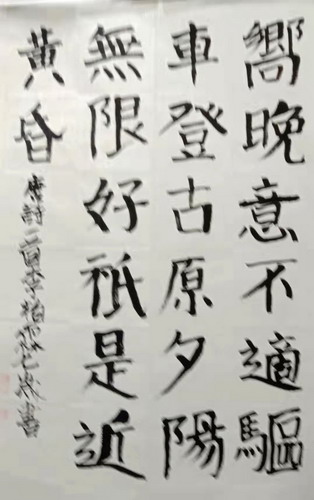 嚮晚意不適驅
車登古原夕陽
無限好祇是近
黄昏 唐詩 書